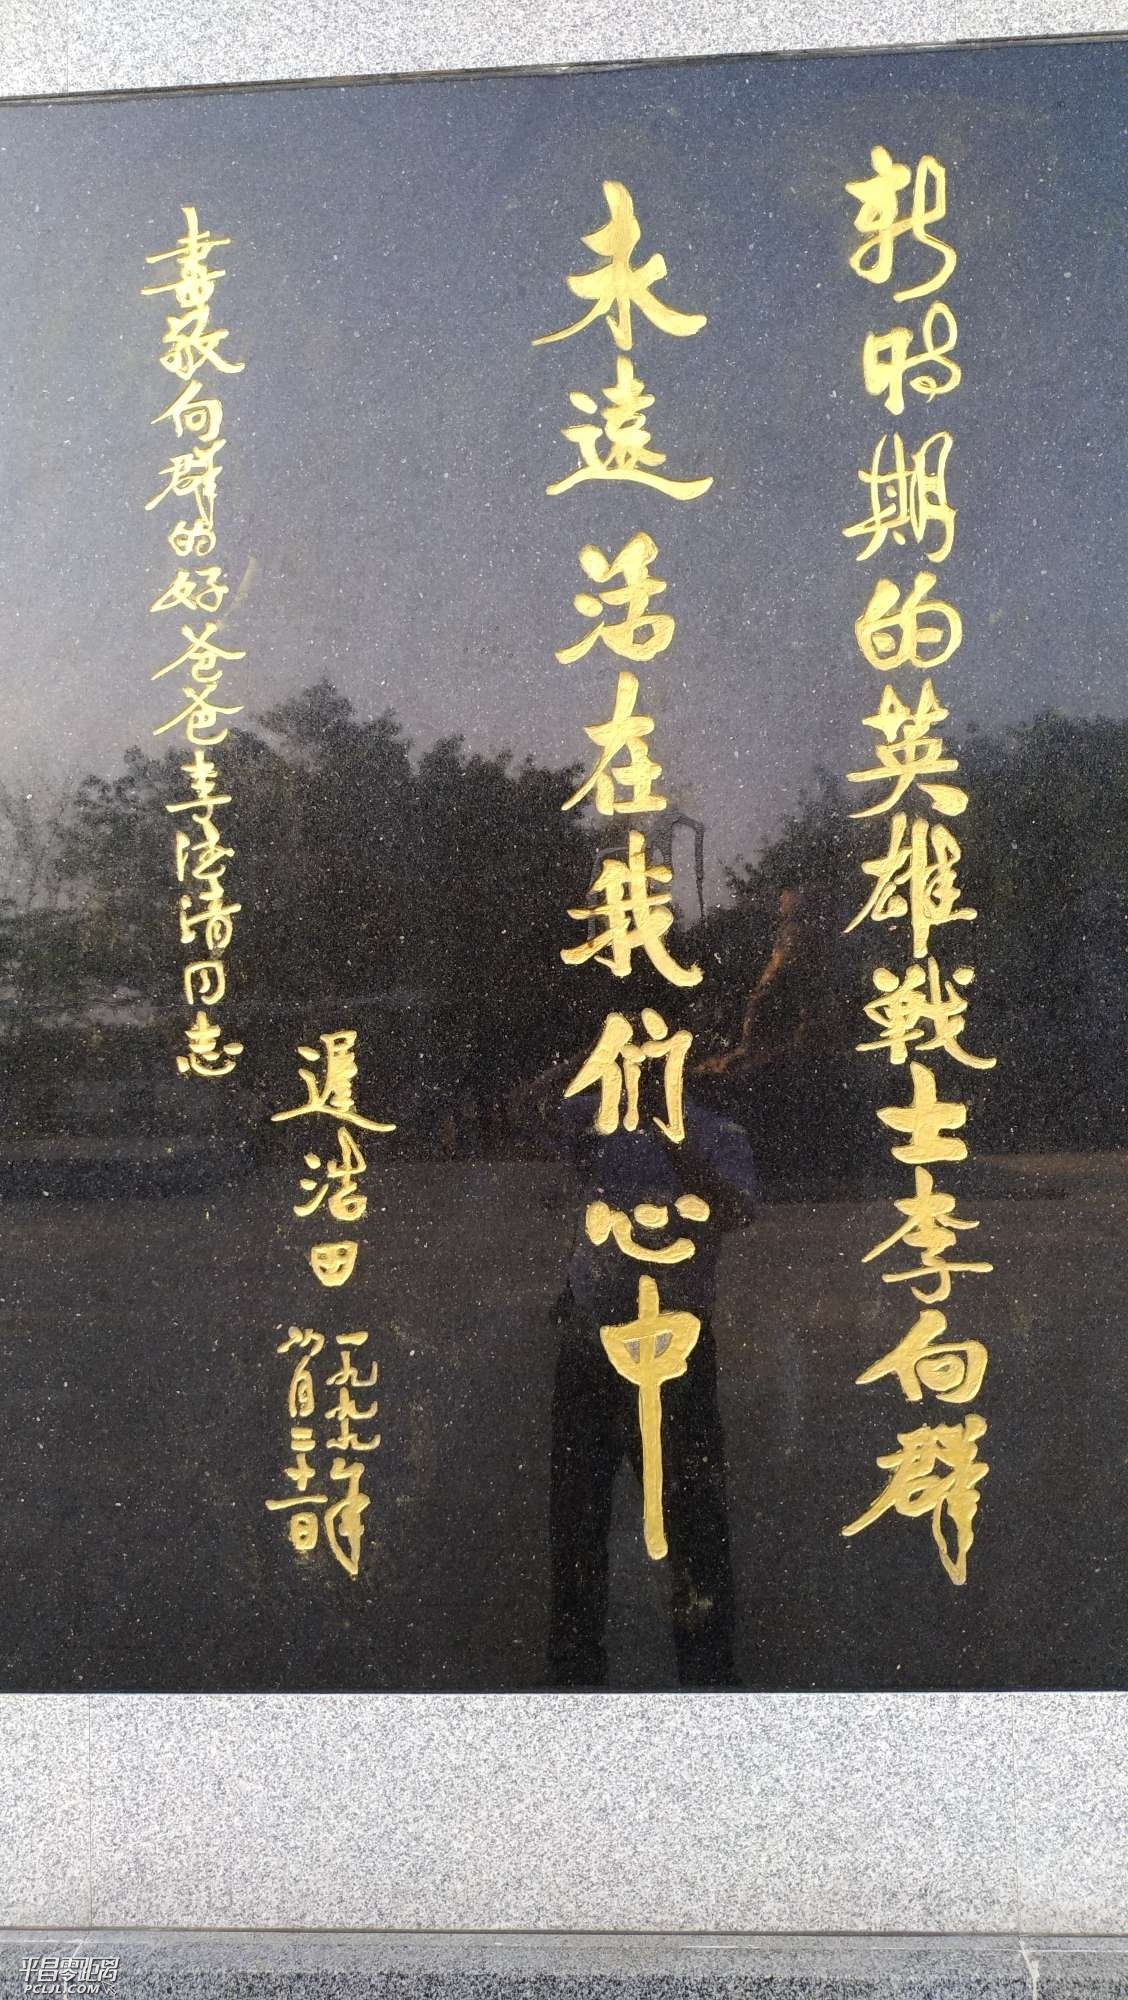 新時期的英雄戰士李向群
永遠活在我們心中
遲浩田
一九九九年
八月二十一日
書敬向群的好爸爸李德清同志
平昌零距离
PCLJL.COM